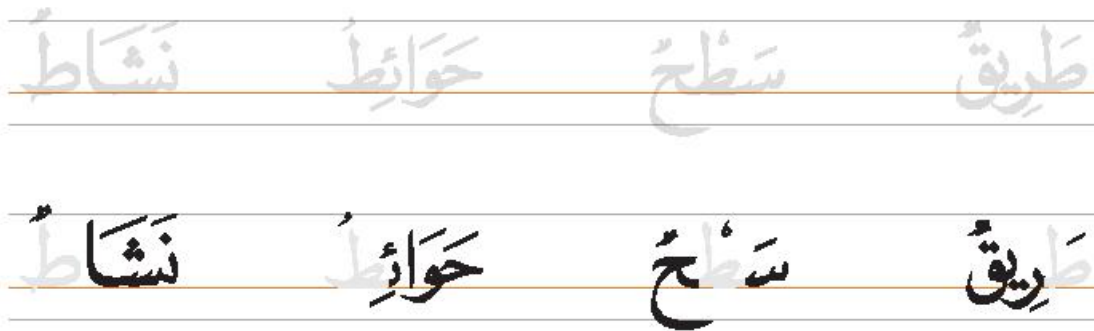 طَرِيقٌ سَطْحٌ حَوَائِطُ نَشَاطٌ
طَرِيقٌ سَطْحٌ حَوَائِطُ نَشَاطٌ